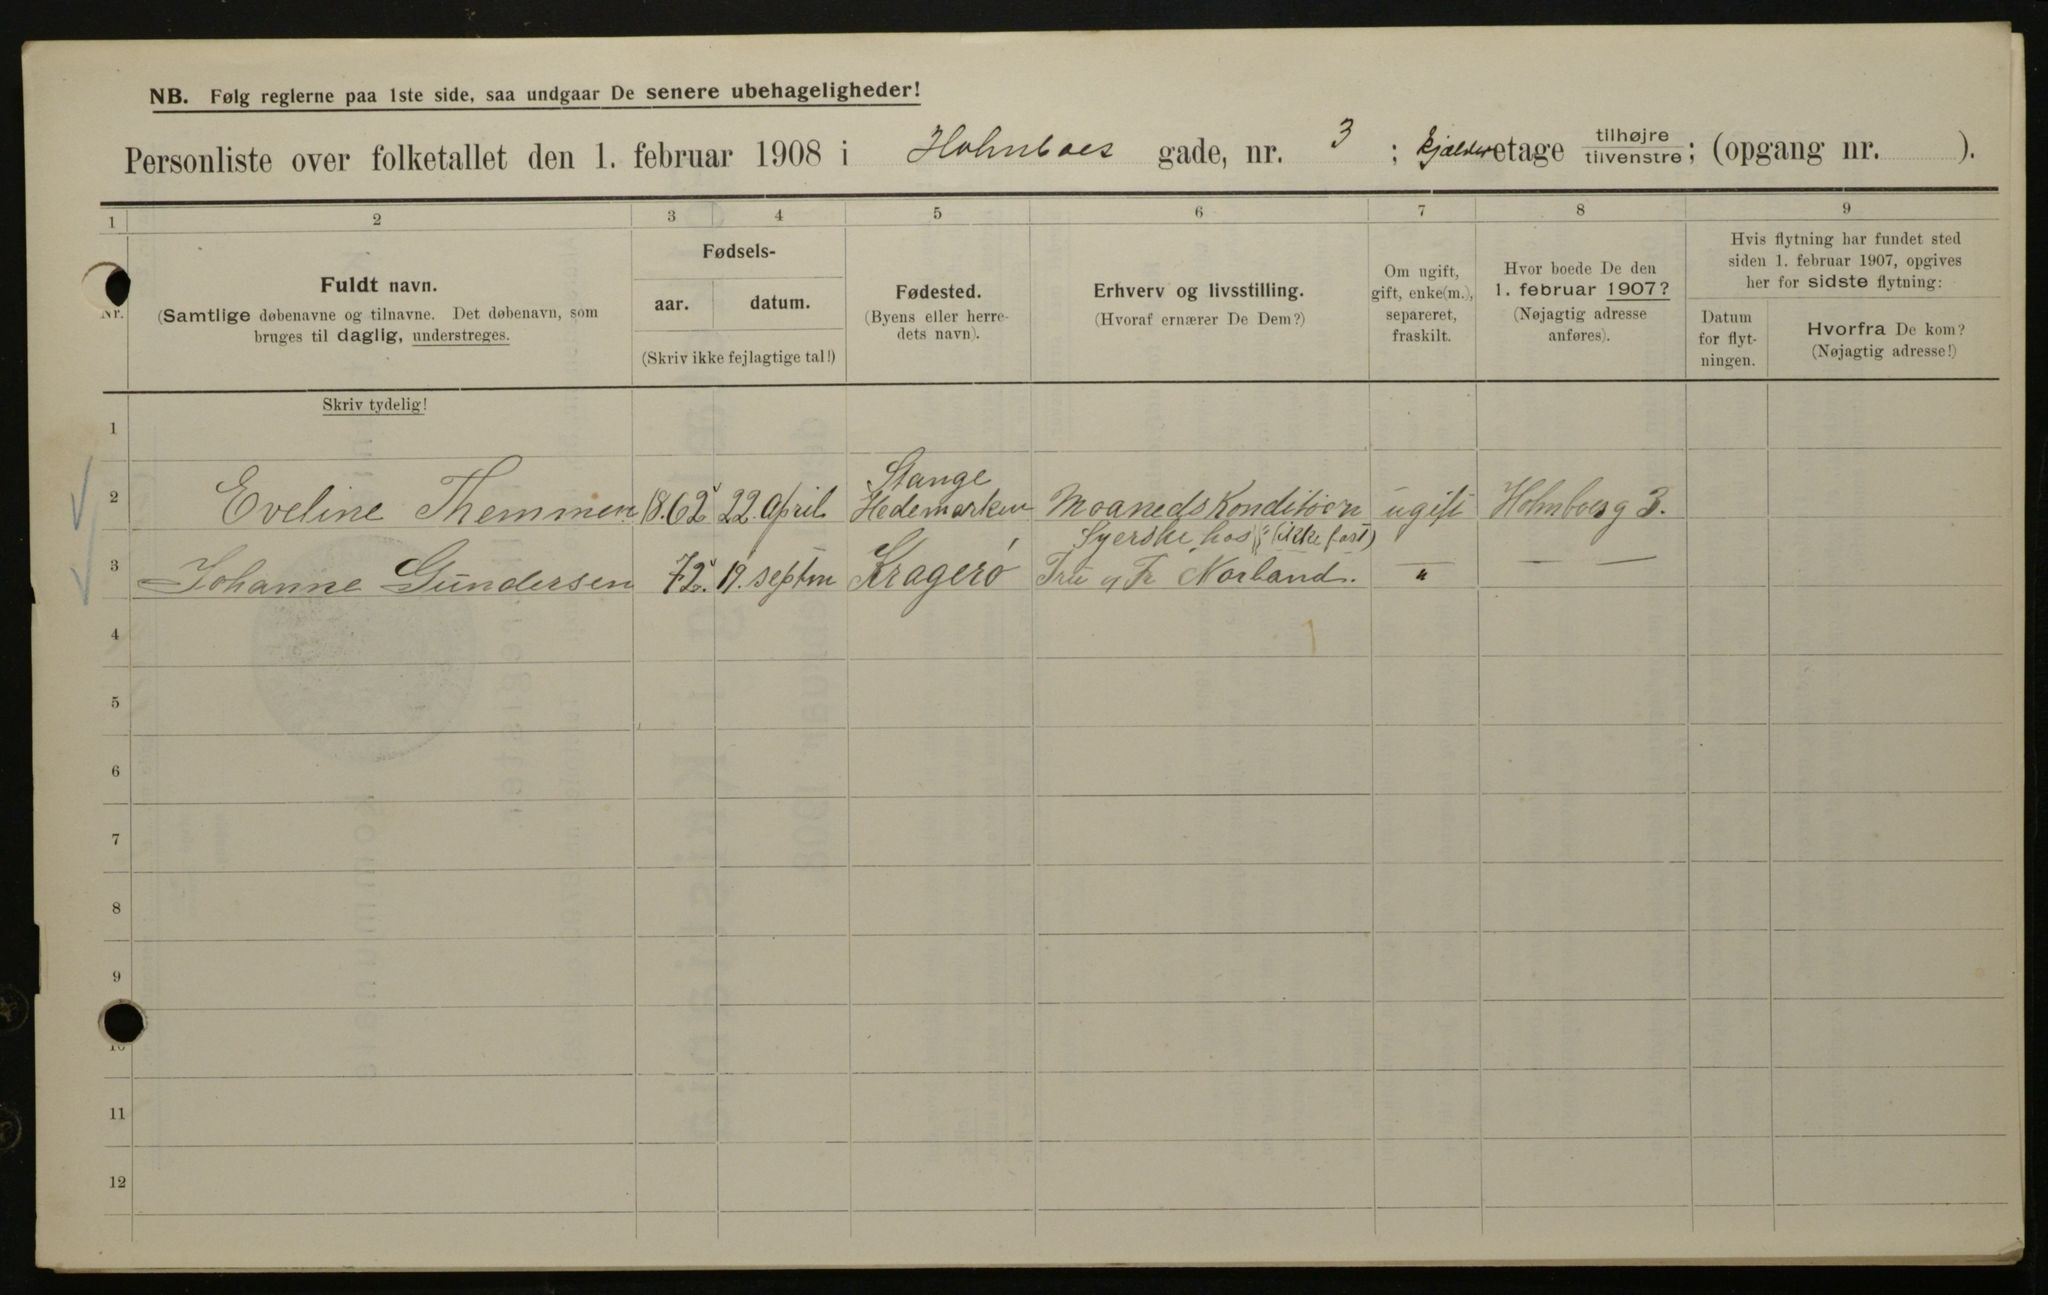 NB. Følg reglerne paa 1ste side, saa undgaar De senere ubehageligheder!
Personliste over folketallet den 1. februar 1908 i Holmboes gade, nr. 3 ; kjælder etage tilhøjre / tilvenstre ; (opgang nr. ).
1 2 3 4 5 6 7 8 9
Nr.
Fuldt navn.
(Samtlige døbenavne og tilnavne. Det døbenavn, som
bruges til daglig, understreges.
Fødsels-
aar. datum.
(Skriv ikke fejlagtige tal!)
Fødested.
(Byens eller herre-
dets navn).
Erhverv og livsstilling.
(Hvoraf ernærer De Dem?)
Om ugift,
gift, enke(m.),
separeret,
fraskilt.
Hvor boede De den
1. februar 1907?
(Nøjagtig adresse
anføres).
Hvis flytning har fundet sted
siden 1. februar 1907, opgives
her for sidste flytning:
Datum
for flyt-
ningen.
Hvorfra De kom?
(Nøjagtig adresse!)
Skriv tydelig!
1
Stange
2 Eveline Themmen 1862 22 April Hedemarken Maaneds Konditioen ugift Holmboesg 3.
Syerske hos (ikke fast)
3 Johanne Gundersen 72. 19. septm Kragerø Fru Norland. " — — —
4
5
6
7
8
9
10
11
12